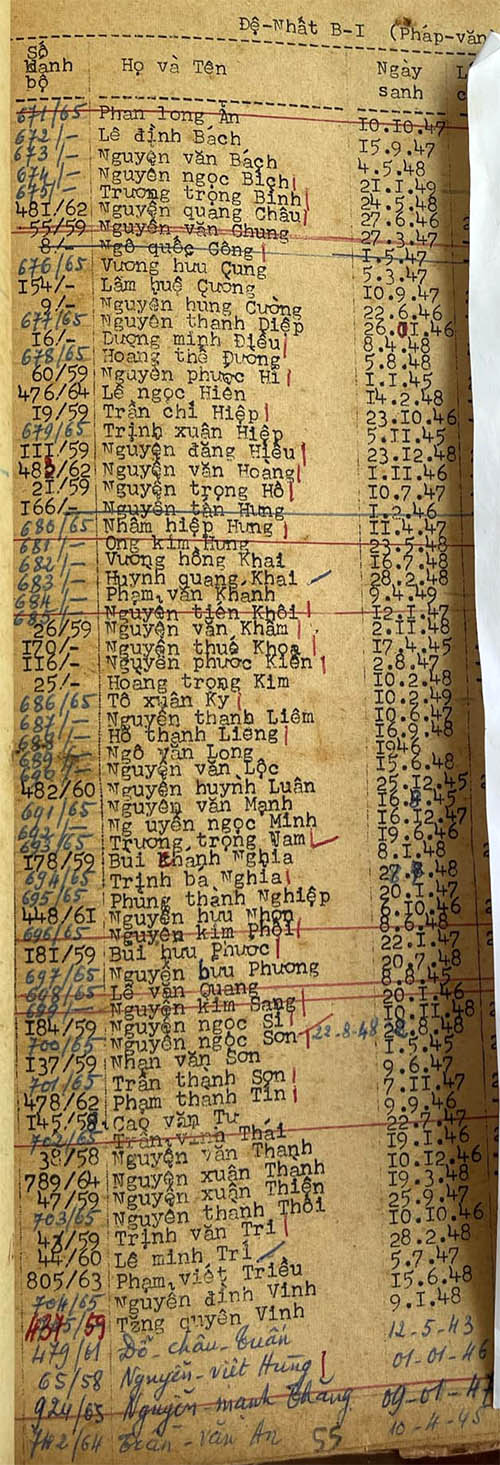 Đệ-Nhất B-I (Pháp-văn
Số danh bộ Họ và Tên Ngày sanh
671/65 Phan long Ẩn 10.10.47
672/- Lê đình Bách 15.9.47
673/- Nguyễn văn Bách 4.5.48
674/- Nguyễn ngọc Bích 21.1.49
675/- Trương trọng Bình 24.5.48
481/62 Nguyễn quang Châu 27.6.46
55/59 Nguyễn văn Chung 27.3.47
8/- Ngô quốc Công 1.5.47
676/65 Vương hưu Cung 5.3.47
154/- Lâm huê Cương 10.9.47
9/- Nguyễn hung Cường 22.6.46
677/65 Nguyễn thanh Diệp 26.01.46
16/- Dương minh Điều 8.4.48
678/65 Hoang thế Đương 5.8.48
60/59 Nguyễn phước Hi 1.1.45
476/64 Lê ngọc Hiên 14.2.48
19/59 Trần chí Hiệp 23.10.46
679/65 Trịnh xuân Hiệp 5.11.45
111/59 Nguyễn đăng Hiếu 23.12.48
482/62 Nguyễn văn Hoang 1.11.46
21/59 Nguyễn trọng Hồ 10.7.47
166/- Nguyễn tân Hưng 1.2.46
680/65 Nhâm hiệp Hưng 11.4.47
681/- Ong kim Hung 23.5.48
682/- Vương hồng Khai 16.7.48
683/- Huynh quang Khai 28.2.48
684/- Phạm văn Khanh 9.4.49
685/- Nguyễn tiến Khôi 12.1.47
26/59 Nguyễn văn Khâm 2.11.48
170/- Nguyễn thuế Khoa 17.4.45
116/- Nguyễn phước Kiên 2.8.47
25/- Hoang trọng Kim 10.2.48
686/65 Tô xuân Kỳ 10.2.49
687/- Nguyễn thanh Liêm 10.6.47
688/- Hồ thanh Liêng 16.9.48
689/- Ngô văn Long 1946
690/- Nguyễn văn Lộc 15.6.48
482/60 Nguyễn huynh Luân 25.12.45
691/65 Nguyễn văn Mạnh 16.8.45
692/- Ng uyễn ngọc Minh 16.12.47
693/65 Trương trọng Nam 19.6.46
178/59 Bùi Khánh Nghĩa 8.1.48
694/65 Trịnh ba Nghĩa 27.8.48
695/65 Phùng thành Nghiệp 20.1.47
448/61 Nguyễn hưu Nhơn 8.10.46
696/65 Nguyễn kim Phôi 8.6.48
181/59 Bùi hưu Phước 22.1.47
697/65 Nguyễn bưu Phương 20.7.48
698/65 Lê văn Quang 8.8.45
699/- Nguyễn kim Sang 20.1.46
184/59 Nguyễn ngọc Sỉ 10.11.48
700/65 Nguyễn ngọc Sơn 22-8-48 28.8.48
137/59 Nhan văn Sơn 1.5.45
701/65 Trần thành Sơn 9.6.47
478/62 Phạm thanh Tín 7.11.47
145/58 Cao văn Tư 9.9.46
702/65 Thái 22.7.47
38/58 Nguyễn văn Thanh 19.1.46
789/64 Nguyễn xuân Thanh 10.12.46
47/59 Nguyễn xuân Thiện 19.3.48
703/65 Nguyễn thanh Thôi 25.9.47
Trịnh văn Trí 10.10.46
44/60 Lê minh Trí 28.2.48
805/63 Phạm viết Triều 5.7.47
704/65 Nguyễn đình Vinh 15.6.48
437/59 Tăng quyên Vinh 9.1.48
479/61 Đỗ-châu-Tuấn 12-5-43
65/58 Nguyễn-viết Hùng 01-01-46
924/65 Nguyễn-mạnh Thăng 09-01-47
742/64 Trần-văn An 55 10-4-45